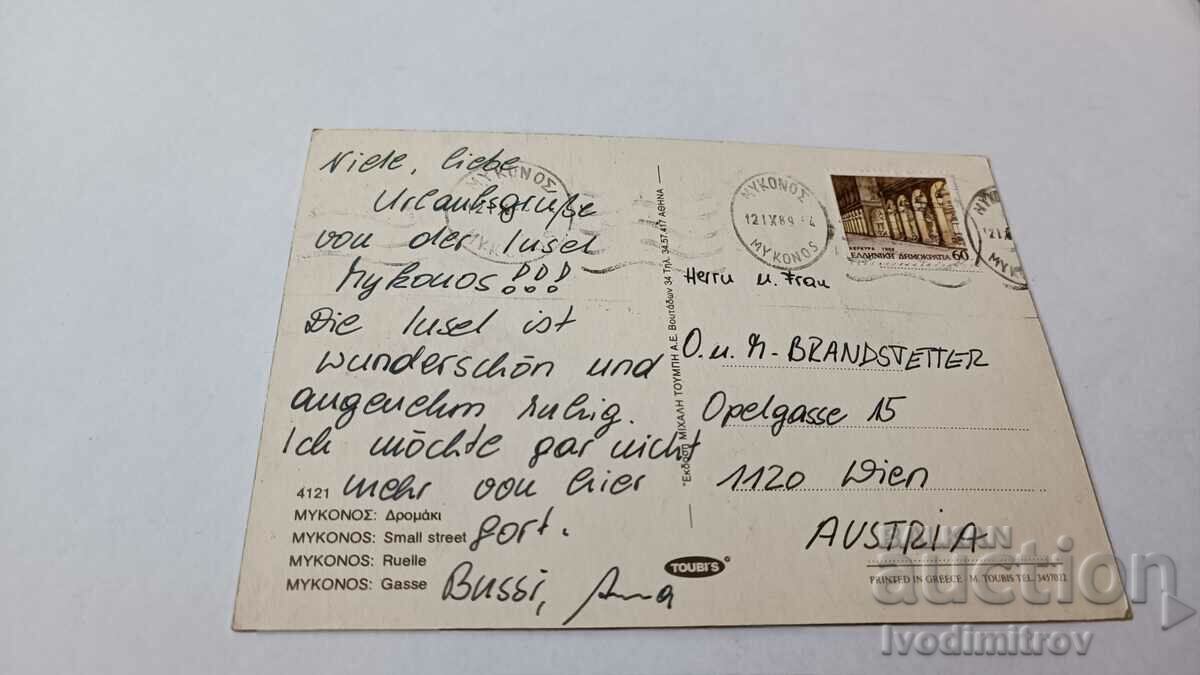 Viele, liebe
Urlaubsgrüße
von der Insel
Mykonos!!!
Die Insel ist
wunderschön und
angenehm ruhig.
Ich möchte gar nicht
mehr von hier
fort.
Bussi, Anna
4121
ΜΥΚΟΝΟΣ: Δρομάκι
MYKONOS: Small street
MYKONOS: Ruelle
MYKONOS: Gasse
"Εκδοση ΜΙΧΑΛΗ ΤΟΥΜΠΗ Α.Ε. Βουτάδων 34 Τηλ. 34.57.417 ΑΘΗΝΑ
TOUBI'S
ΜΥΚΟΝΟΣ
MYKONOS
ΜΥΚΟΝΟΣ
12 IX 89
MYKONOS
ΚΕΡΚΥΡΑ 1988
ΕΛΛΗΝΙΚΗ ΔΗΜΟΚΡΑΤΙΑ 60
Herrn u. Frau
O. u. H. BRANDSTETTER
Opelgasse 15
1120 Wien
AUSTRIA
PRINTED IN GREECE M. TOUBIS TEL. 3457022
BALKAN
auction
Ivodimitrov